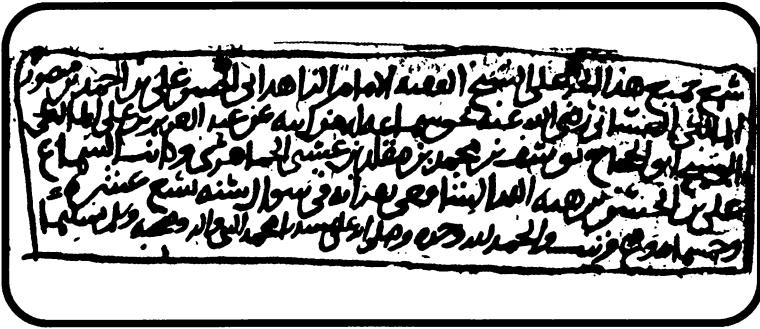 سمع جميع هذا الجزء على الشيخ الفقيه الامام الزاهد ابي الحسن علي بن احمد بن منصور
المالكي الغساني رضي الله عنه نحو سماعه من كتابه عن عبد العزيز بن علي
الشيخ ابو الحجاج يوسف بن محمد بن مقلد بن عيسى الجماهري وكاتب السماع
علي بن الحسن بن هبة الله الشافعي بقراءته في شوال سنة تسع عشرة
وخمسمائة والحمد لله وحده وصلواته على سيدنا محمد النبي واله وصحبه وسلم تسليما